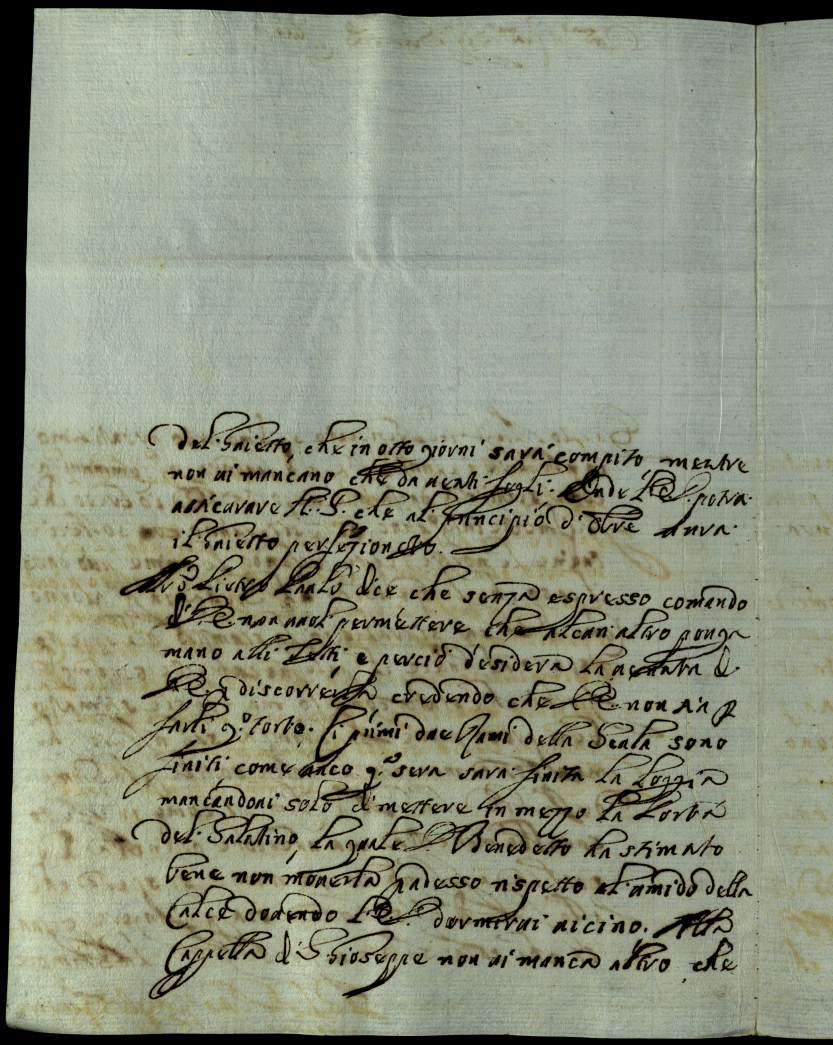 del Gaietto, che in otto giorni sarà compito mentre
non vi mancano che da venti fogli. Onde V.E. potrà
assicurare che al principio d'8bre avrà
il Gaietto perfezionato.
Pietro Paolo dice che senza espresso comando
di V.E. non vuol permettere che alcun altro ponga
mano alli, e perciò desidera la venuta di
V.E. discorrerla credendo che V.E. non sia p
farli q.o torto. Li primi due Rami della Scala sono
finiti come anco q.a sera sarà finita la Loggia
mancandovi solo di mettere in mezzo la Porta
del Salotino, la quale D. Benedetto ha stimato
bene non moverla p adesso rispetto al umido della
Calce dovendo V.E. dormirvi vicino. Alla
Cappella di S. Gioseppe non vi manca altro che